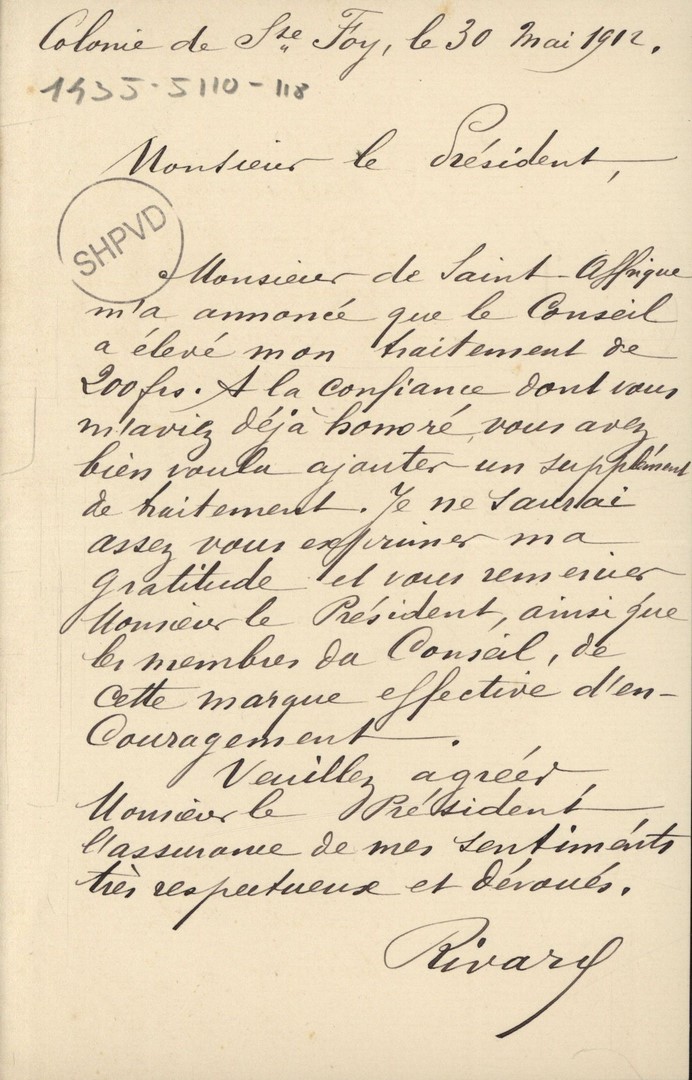 Colonie de Ste Foy, le 30 Mai 1912.
1435-5110-118
Monsieur le Président,
SHPVD
Monsieur de Saint-Affrique
m'a annoncé que le Conseil
a élevé mon traitement de
200frs. A la confiance dont vous
m'aviez déjà honoré, vous avez
bien voulu ajouter un supplément
de traitement. Je ne saurai
assez vous exprimer ma
gratitude et vous remercier
Monsieur le Président, ainsi que
les membres du Conseil, de
cette marque effective d'en-
couragement.
Veuillez agréer,
Monsieur le Président
l'assurance de mes sentiments
très respectueux et dévoués.
Rivard